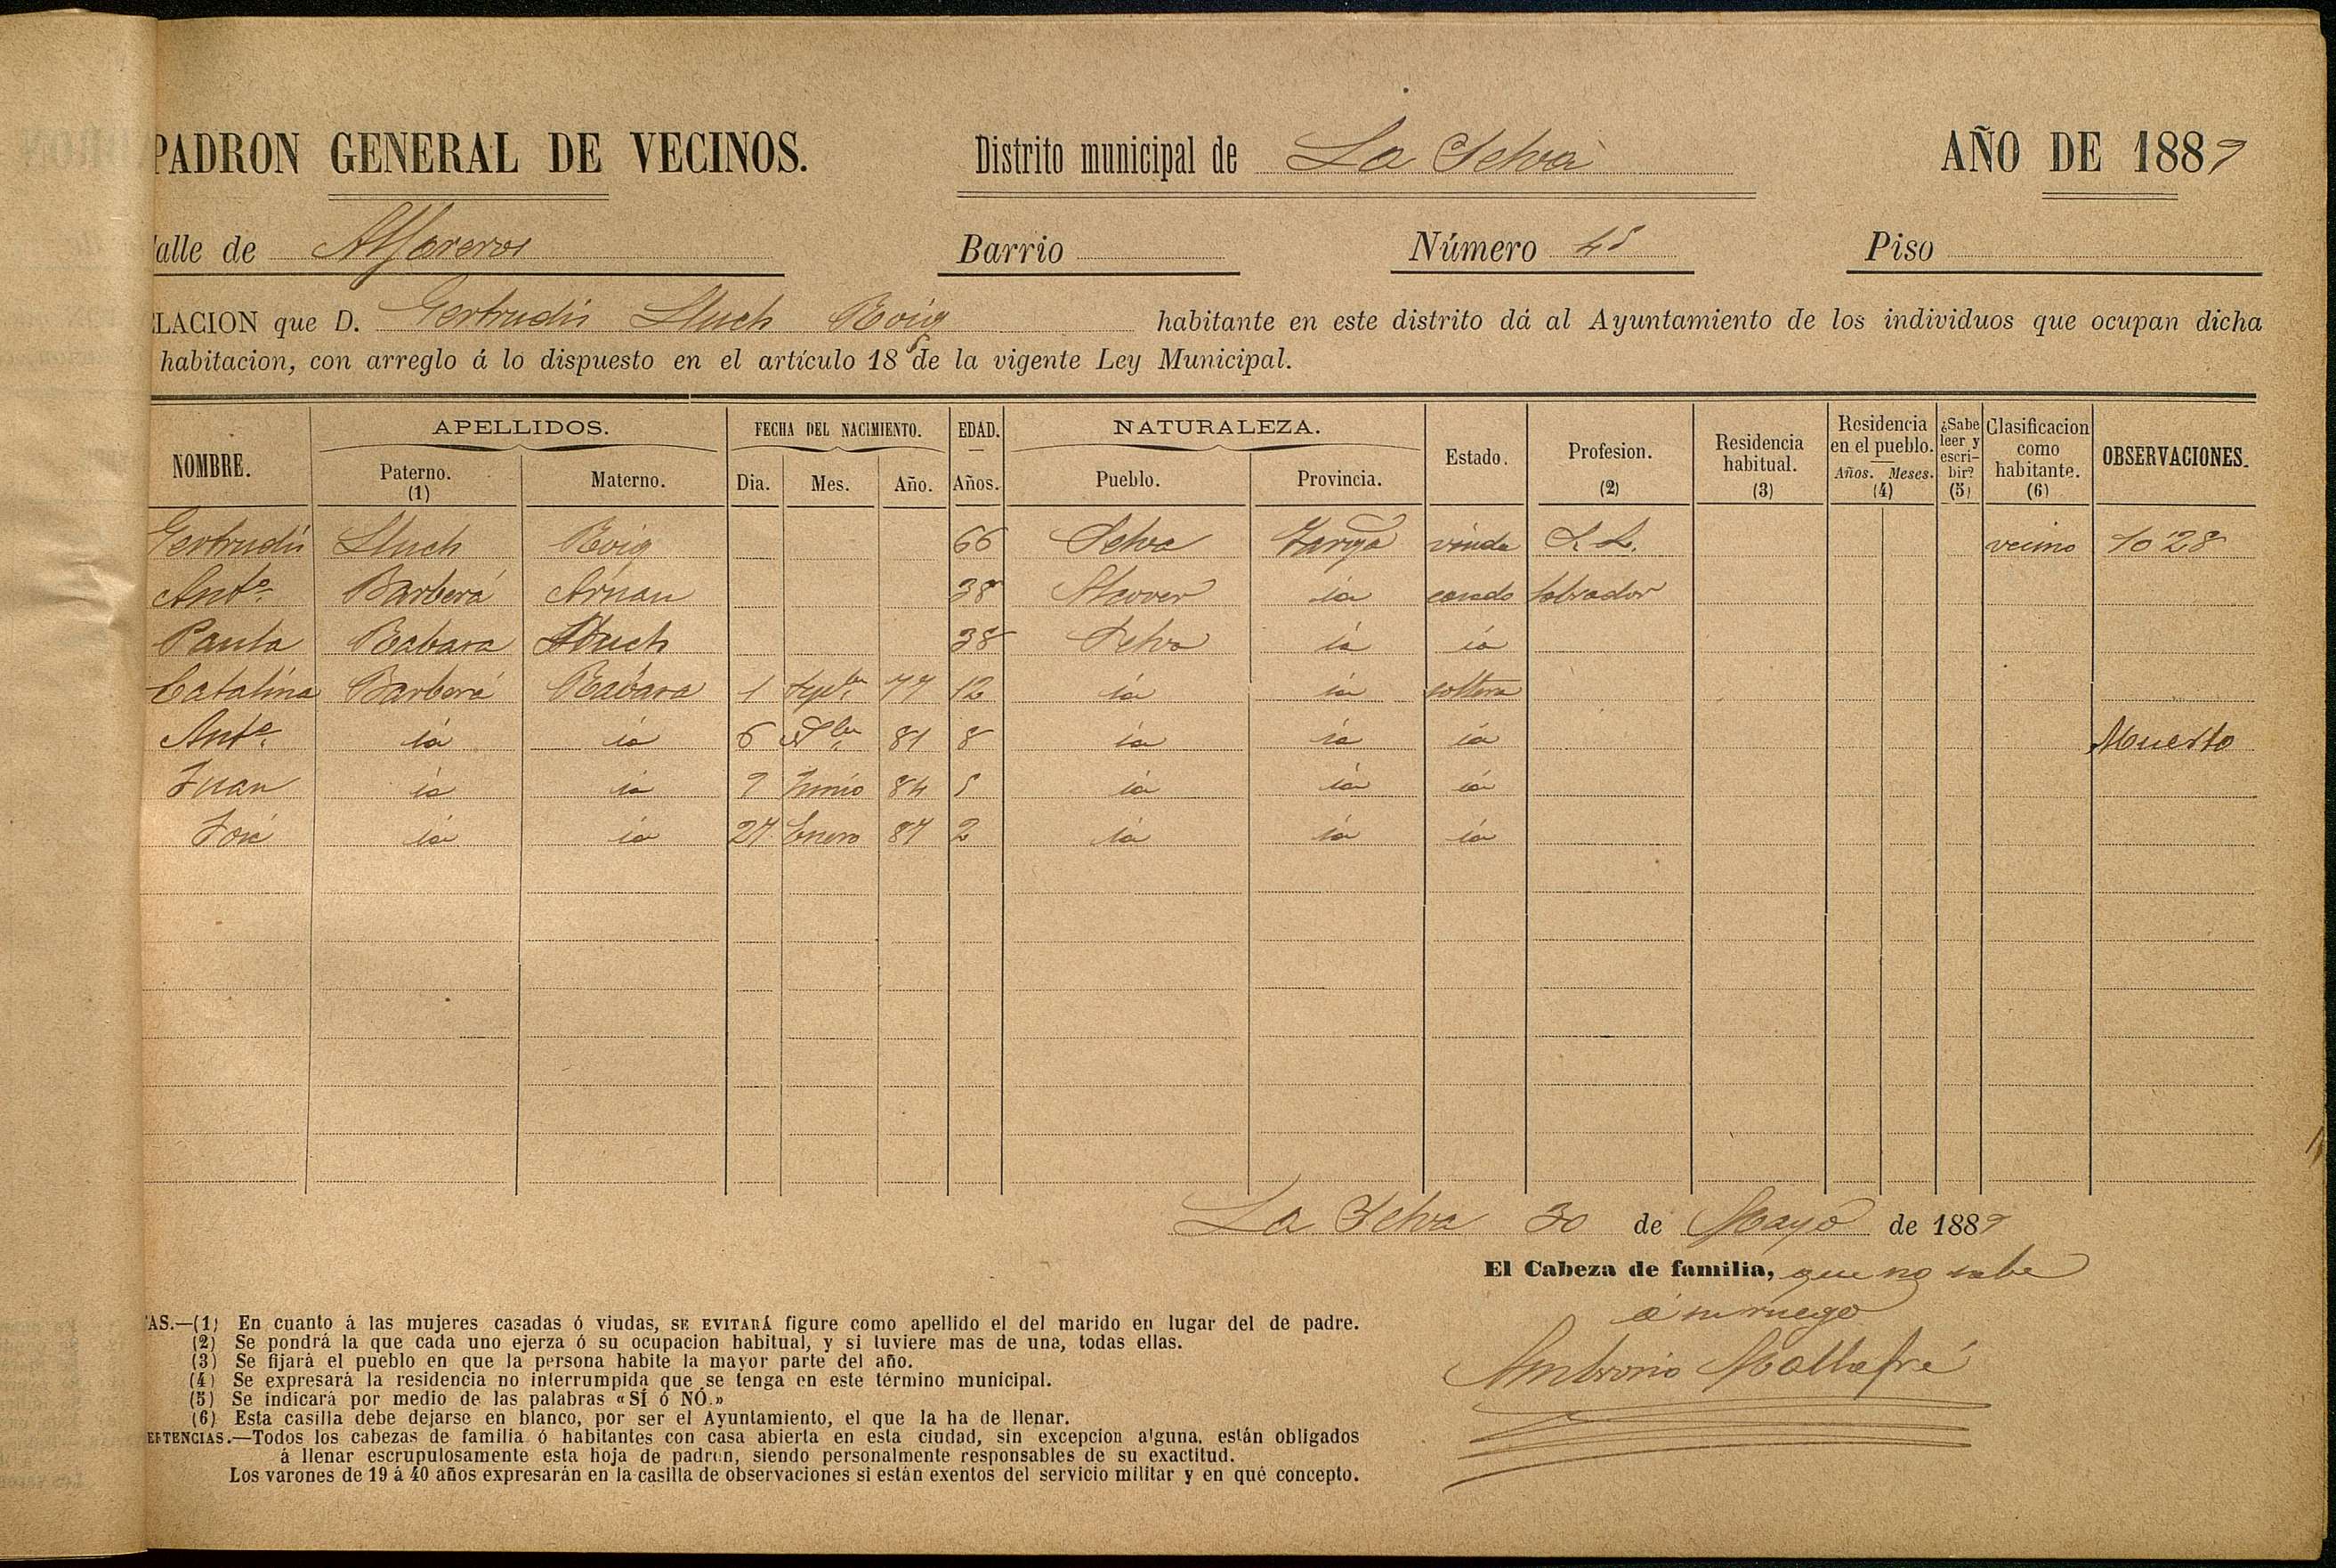 PADRON GENERAL DE VECINOS. Distrito municipal de La Selva AÑO DE 1889
alle de Alfareros Barrio Número 45 Piso
LACION que D. Gertrudis Lluch Roig habitante en este distrito dá al Ayuntamiento de los individuos que ocupan dicha
habitacion, con arreglo á lo dispuesto en el artículo 18 de la vigente Ley Municipal.
NOMBRE. APELLIDOS. FECHA DEL NACIMIENTO. EDAD. NATURALEZA. Estado. Profesion. (2) Residencia habitual. (3) Residencia en el pueblo. Años. Meses. (4) ¿Sabe leer y escribir? (5) Clasificacion como habitante. (6) OBSERVACIONES.
Paterno. (1) Materno. Dia. Mes. Año. Años. Pueblo. Provincia.
Gertrudis Lluch Roig 66 Selva Tarrga viuda S. L. vecino 10'28
Anto. Barberá Arnau 38 Alcover id casado labrador
Paula Rabasa Lluch 38 Selva id id
Catalina Barberá Rabasa 1 Sepbre 77 12 id id soltera
Anto. id id 6 81 8 id id id Muerto
Juan id id 9 Junio 84 5 id id id
José id id 27 Enero 87 2 id id id
La Selva 30 de Mayo de 1889
El Cabeza de familia, que no sabe
á su ruego
Ambrosio Mallafré
AS.—(1) En cuanto á las mujeres casadas ó viudas, SE EVITARÁ figure como apellido el del marido en lugar del de padre.
(2) Se pondrá la que cada uno ejerza ó su ocupacion habitual, y si tuviere mas de una, todas ellas.
(3) Se fijará el pueblo en que la persona habite la mayor parte del año.
(4) Se expresará la residencia no interrumpida que se tenga en este término municipal.
(5) Se indicará por medio de las palabras «SÍ ó NÓ.»
(6) Esta casilla debe dejarse en blanco, por ser el Ayuntamiento, el que la ha de llenar.
ERTENCIAS.—Todos los cabezas de familia ó habitantes con casa abierta en esta ciudad, sin excepcion alguna, están obligados
á llenar escrupulosamente esta hoja de padron, siendo personalmente responsables de su exactitud.
Los varones de 19 á 40 años expresarán en la casilla de observaciones si están exentos del servicio militar y en qué concepto.